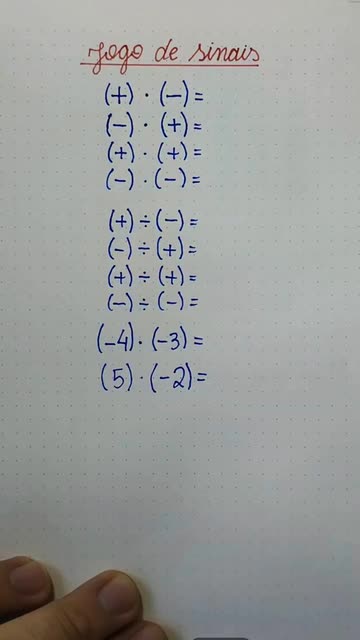 Jogo de sinais
(+) · (-) =
(-) · (+) =
(+) · (+) =
(-) · (-) =
(+) ÷ (-) =
(-) ÷ (+) =
(+) ÷ (+) =
(-) ÷ (-) =
(-4) · (-3) =
(5) · (-2) =